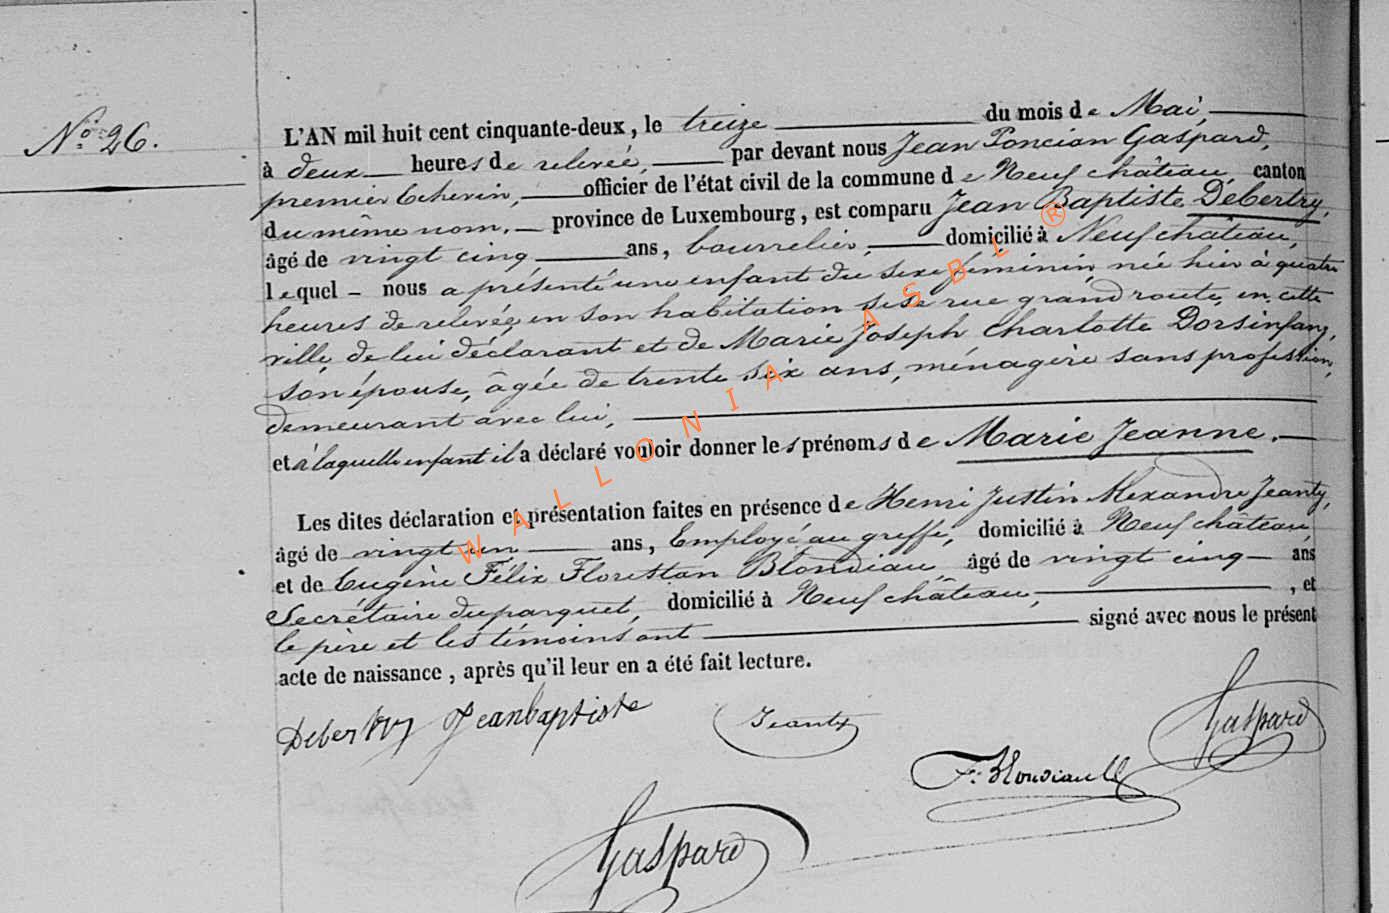 No. 26.
L'AN mil huit cent cinquante-deux, le treize du mois de Mai,
à deux heures de relevée, par devant nous Jean Poncian Gaspard,
premier Echevin, officier de l'état civil de la commune de Neufchâteau, canton
du même nom, province de Luxembourg, est comparu Jean Baptiste Debertry,
âgé de vingt cinq ans, bourrelier, domicilié à Neufchâteau,
lequel nous a présenté une enfant du sexe féminin, née hier à quatre
heures de relevée, en son habitation sise rue grand route, en cette
ville, de lui déclarant et de Marie Joseph Charlotte Dorsinfang,
son épouse, âgée de trente six ans, ménagère sans profession,
demeurant avec lui,
et à laquelle enfant il a déclaré vouloir donner les prénoms de Marie Jeanne.
Les dites déclaration et présentation faites en présence de Henri Justin Alexandre Jeanty,
âgé de vingt un ans, Employé au greffe, domicilié à Neufchâteau,
et de Eugène Félix Floristan Blondiau, âgé de vingt cinq ans
Secrétaire du parquet, domicilié à Neufchâteau, , et
le père et les témoins ont signé avec nous le présent
acte de naissance, après qu'il leur en a été fait lecture.
Debertry Jeanbaptiste
Jeanty
Gaspard
F. Blondiau
Gaspard
WALLONIA ASBL ®